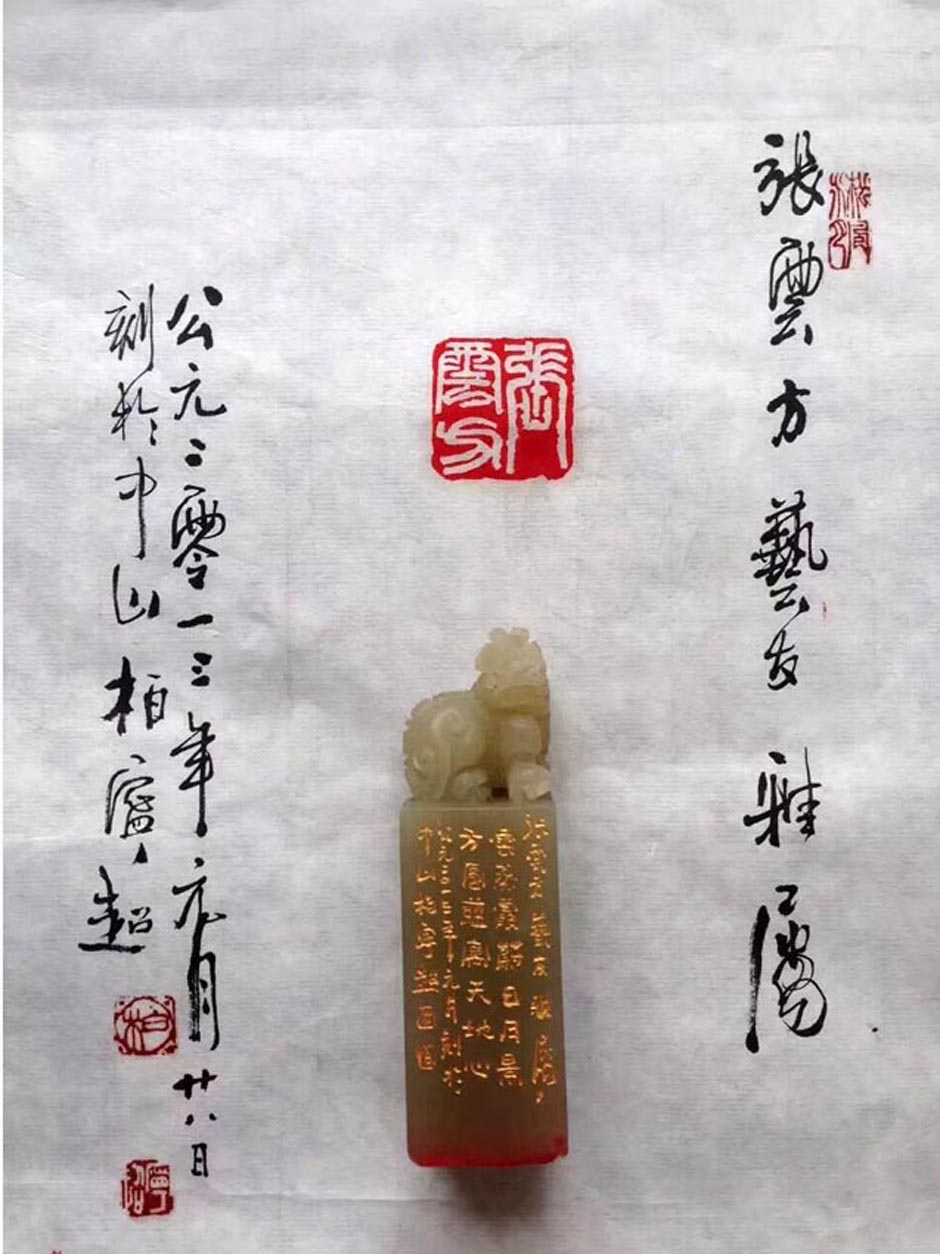 張雲方藝友雅屬
張雲方
公元二零一三年元月廿八日
刻於中山柏寧超
柏
寧超
張雲方藝友雅屬
雲蒸霞蔚日月景
方圓 天地心
公元二〇一三年元月刻於
中山柏寧超